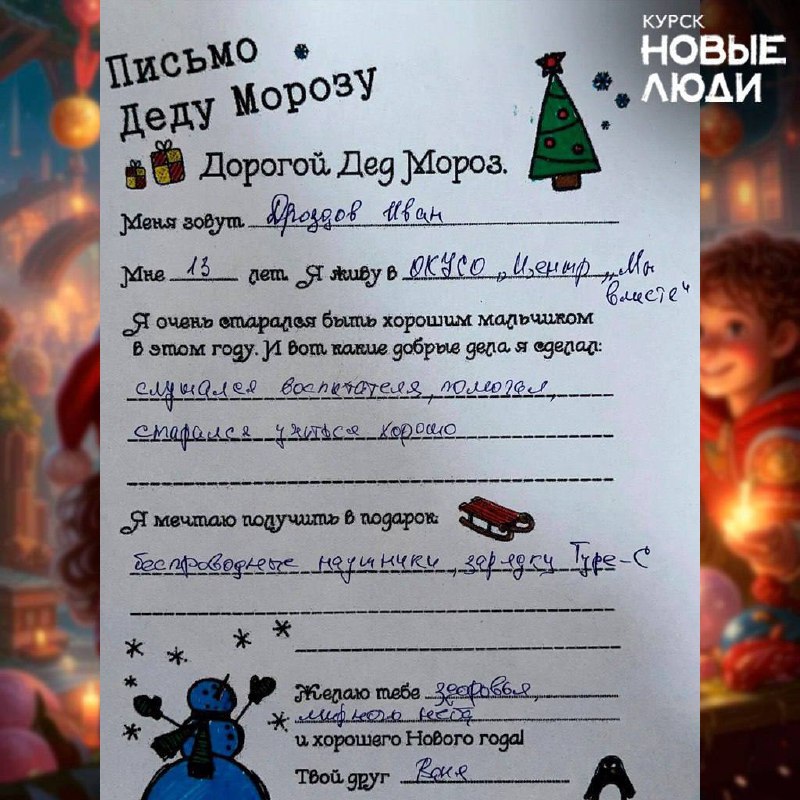 КУРСК
НОВЫЕ
ЛЮДИ
Письмо
Деду Морозу
Дорогой Дед Мороз.
Меня зовут Дроздов Иван
Мне 13 лет. Я живу в ОКУСО „Центр „Мы
вместе"
Я очень старался быть хорошим мальчиком
в этом году. И вот какие добрые дела я сделал:
слушался воспитателя, помогал,
старался учиться хорошо
Я мечтаю получить в подарок:
беспроводные наушники, зарядку Type-C
Желаю тебе здоровья,
мирного неба
и хорошего Нового года!
Твой друг Ваня